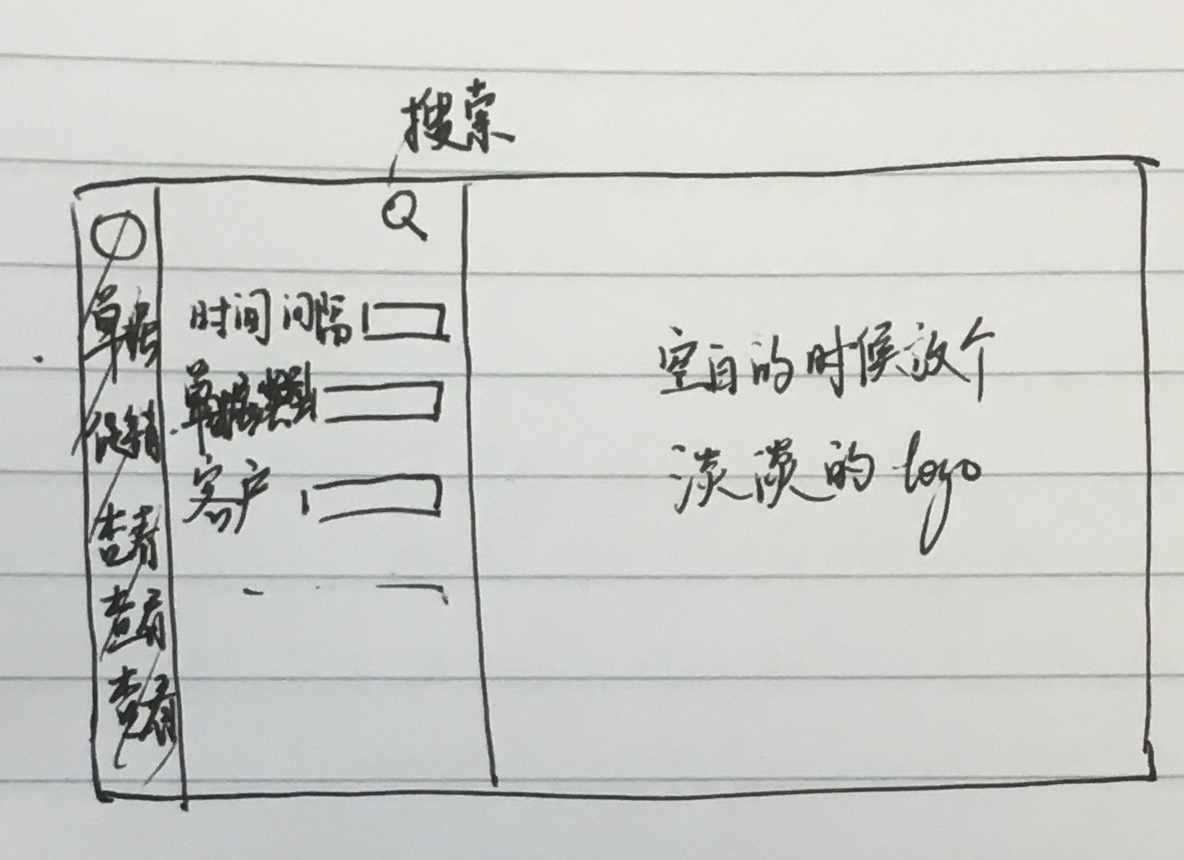 搜索
单据
促销
查看
查看
查看
时间间隔
单据类型
客户
空白的时候放个
淡淡的logo